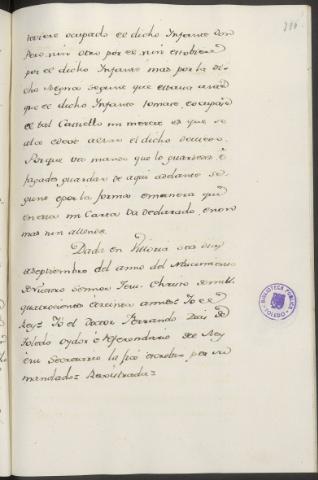 tuviere ocupado el dicho Infante Don
Pero nin otro por el nin en nombre
por el dicho Infante mas por la di-
cha Reyna segunt que estava antes
que el dicho Infante tomare e ocupare
el tal Castillo mi merced es que se
alce e dexe el dicho
Porque vos mando que lo guardedes e
fagades guardar de aqui adelante se-
gunt e por la forma e manera que
en esta mi Carta va declarado, e non
mas nin allende.
Dada en dias
de septiembre del anno del Nacimiento
de Nuestro Sennor Jesu Christo de mill
quatrocientos treinta annos Yo el
Rey = Yo el Doctor Fernando Diaz de
Toledo Oydor e Referendario del Rey
e su Secretario la fice escrebir por su
mandado = Registrada =
BIBLIOTECA PÚBLICA
TOLEDO